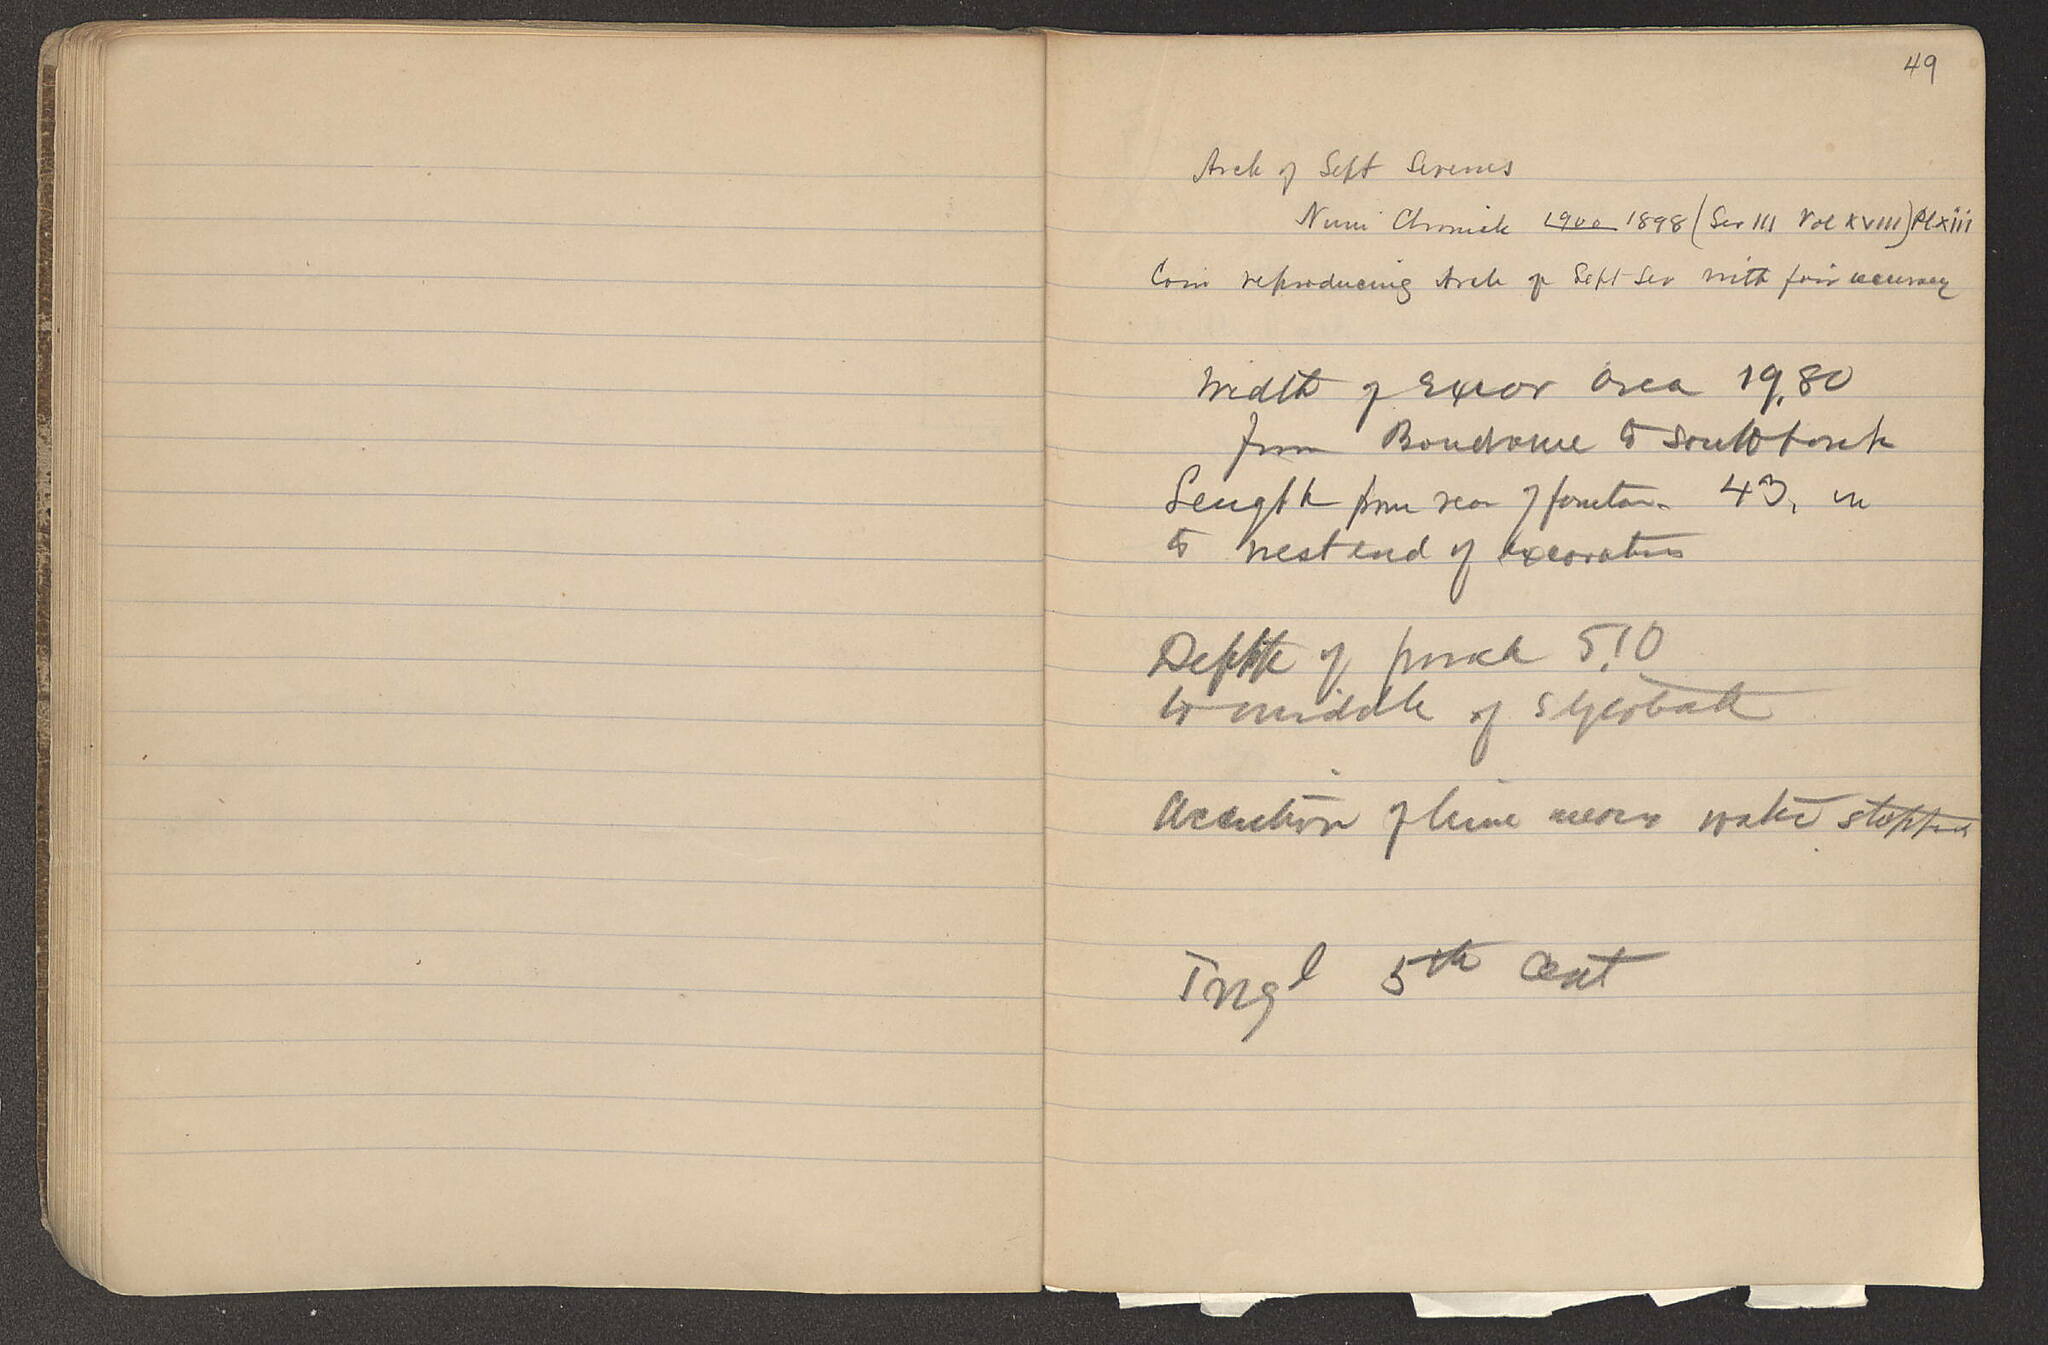 49
Arch of Sept Severus
Numi Chronicle 1900 1898 (Ser III Vol XVIII) Pl xiii
Coin reproducing Arch of Sept Sev with fair accuracy
Width of Excav area 19,80
from Boudrome to south bank
Length from rear of fountain 43, m
to west end of excavation
Depth of porch 5,10
to middle of stylobate
Accretion of lime means water stopped
5th Cent